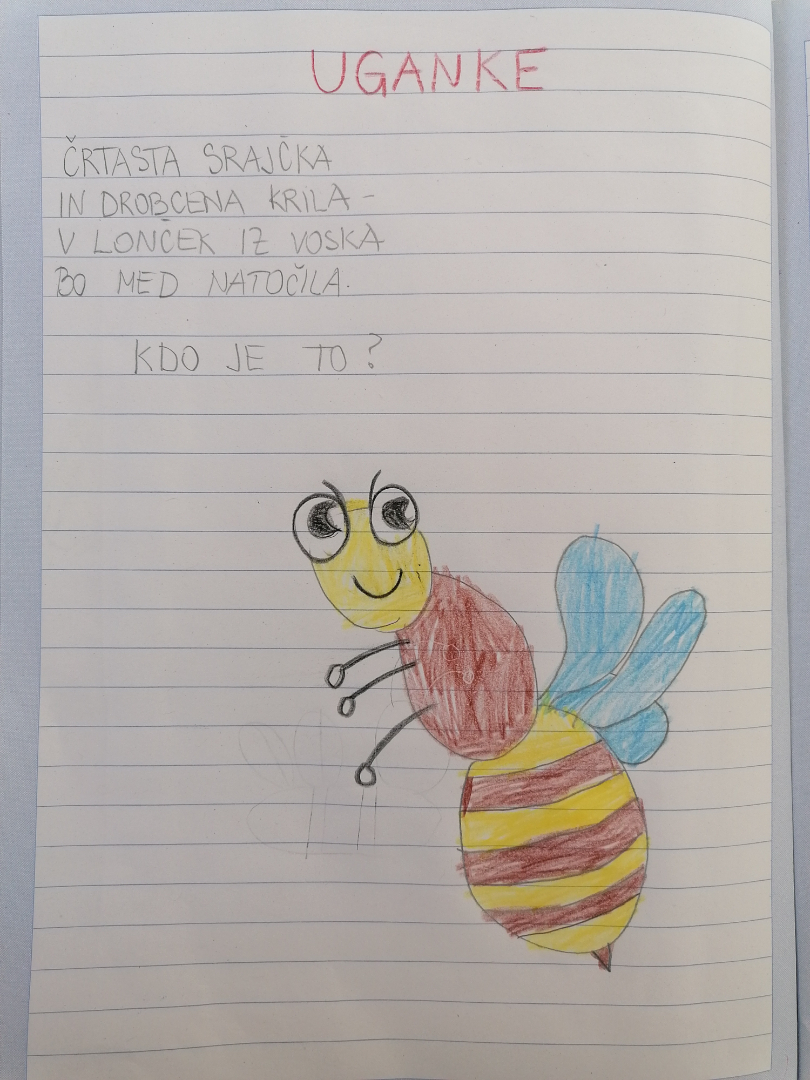 UGANKE
ČRTASTA SRAJČKA
IN DROBCENA KRILA -
V LONČEK IZ VOSKA
BO MED NATOČILA.
KDO JE TO?